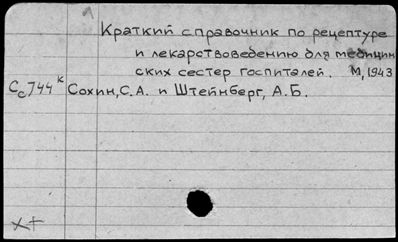 Краткий справочник по рецептуре
и лекарствоведению для медицин
ских сестер госпиталей. М, 1943
Сс744к Сохин, С.А. и Штейнберг, А.Б.